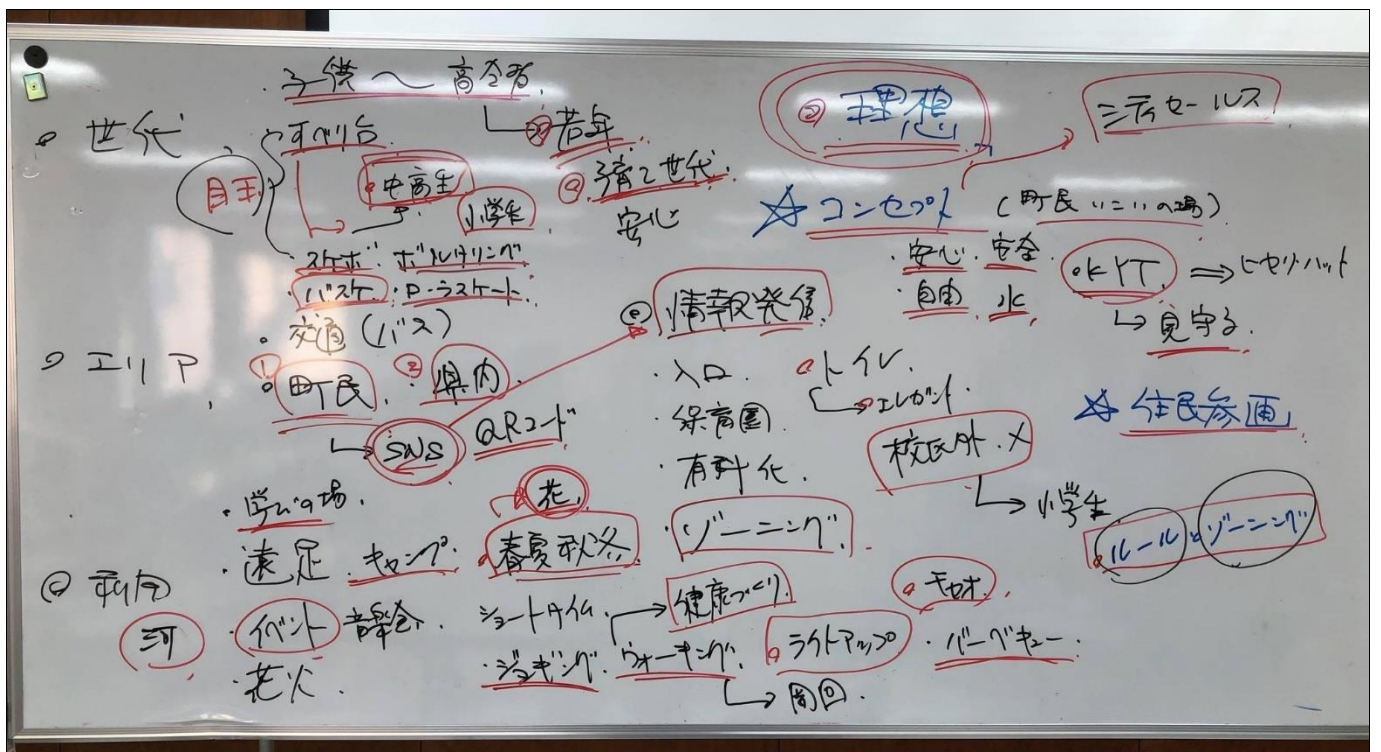 子供〜高令者
・世代
すべり台
→若年
中高生
小学生
子育て世代
安心
スケボ・ボルダリング
・バスケ・ローラスケート
・交通(バス)
・エリア
①町民 ②県内
→SNS QRコード
・学びの場
・遠足 キャンプ
利用
河
・イベント 音楽会
・花火
花
春夏秋冬
ショートタイム
・ジョギング ウォーキング
→健康づくり
→周回
情報発信
・入口
・保育園
・有料化
・ゾーニング
・トイレ
→エレガント
校区外 ×
→小学生
ライトアップ
・バーベキュー
理想
シティセールス
☆コンセプト(町民いこいの場)
・安心・安全
・自由 水
・KYT ⇒ヒヤリ・ハット
→見守る
☆住民参画
・ルールとゾーニング